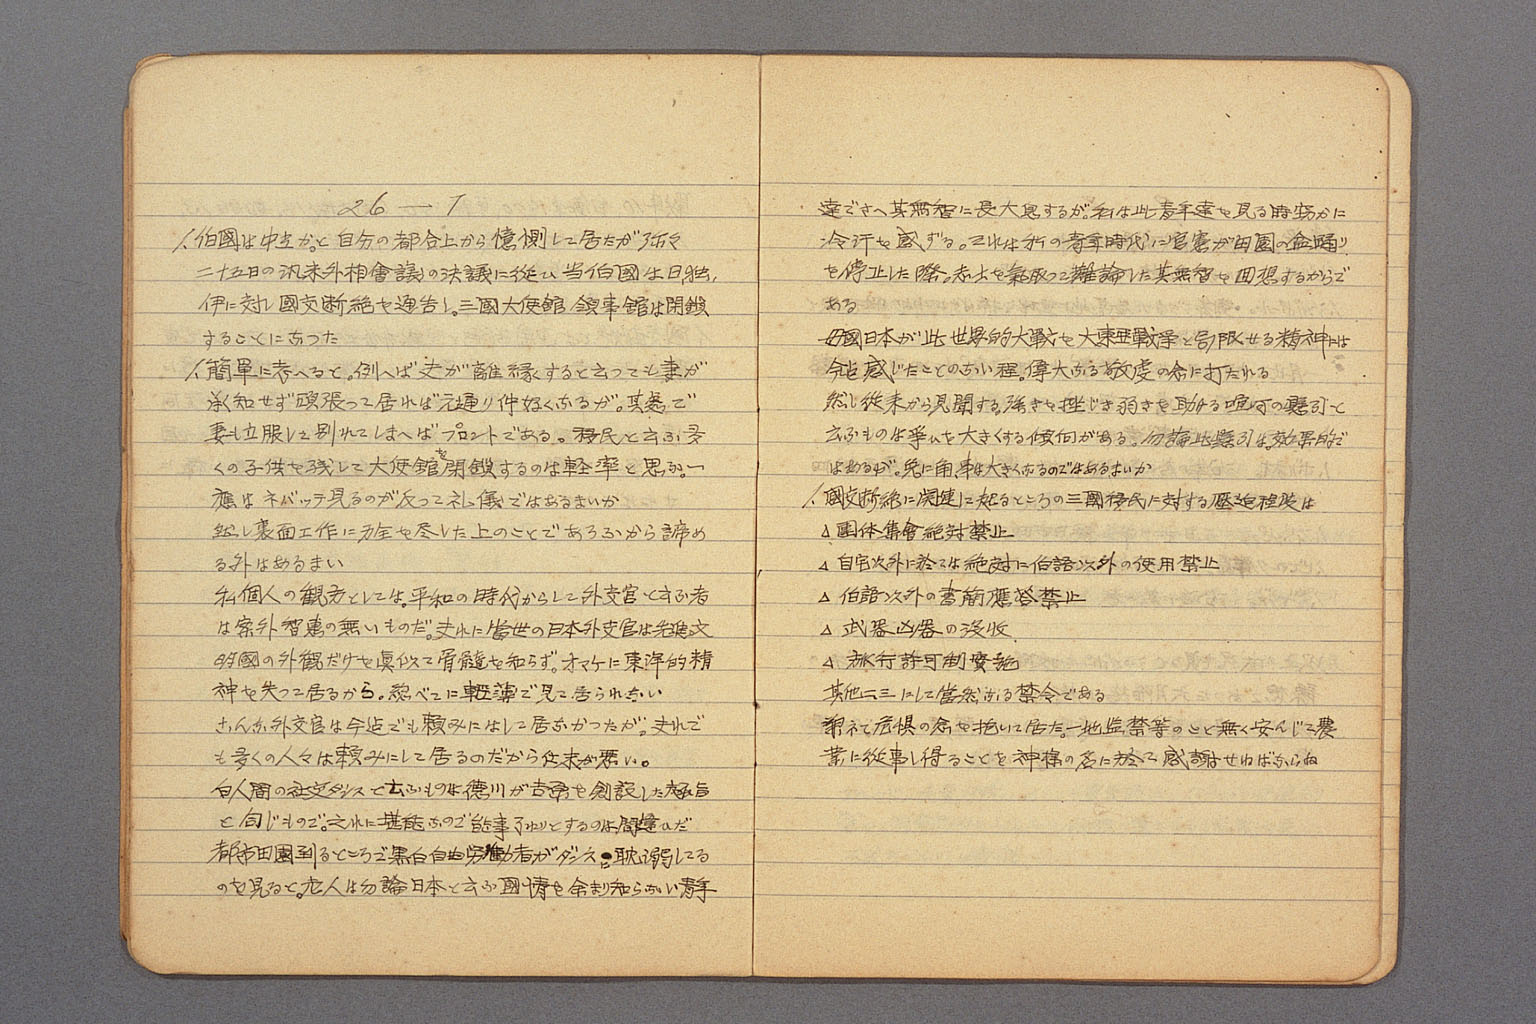 26 — 1
伯國は中立か。と自分の都合上から憶測して居たが弥々
二十五日の汎米外相會議の決議に従ひ当伯國は日独、
伊に対し國交断絶を通告し。三國大使館領事館は閉鎖
することになった
簡單に考へると。例へば夫が離縁すると云っても妻が
承知せず頑張って居れば元通り仲好くなるが。其処で
妻も立服して別れてしまへばプロントである。移民と云ふ多
くの子供を残して大使館を閉鎖するのは軽率と思ふ一
應はネバッテ見るのが反って礼儀ではあるまいか
然し裏面工作に万全を尽した上のことであろふから諦め
る外はあるまい
私個人の観方としては。平和の時代からして外交官と云ふ者
は案外智惠の無いものだ。夫れに當世の日本外交官は先進文
明國の外観だけを真似て骨髄を知らず。オマケに東洋的精
神を失って居るから。総べてに軽薄で見て居られない
こんな外交官は今迄でも頼みにはして居なかつたが。夫れで
も多くの人々は頼みにして居るのだから仕末が悪い。
白人間の社交ダンスと云ふものは徳川が吉原を創設した趣旨
と同じもので。之れに堪能なので能事了れりとするのは間違ひだ
都市田園到るところで黒白自由労働者がダンスに耽溺してる
のを見ると。老人は勿論日本と云ふ國情を余まり知らない青年
達でさへ其無智に長大息するが。私は此青年達を見る時窃かに
冷汗を感ずる。それは私の青年時代に官憲が田園の盆踊り
を停止した際。志士を氣取って難論した其無智を回想するからで
ある
母國日本が此世界的大戦を大東亜戦争と局限せる精神には
今迄感じたことのない程。偉大なる敬虔の念に打たれる
然し従来から見聞する。強きを挫じき弱きを助ける喧嘩の懸引と
云ふものは爭ひを大きくする傾向がある。勿論此懸引は効果的で
はあるが。兎に角事は大きくなるのではあるまいか
國交断絶に関連して起るところの三國移民に対する壓迫程度は
△ 團体集會絶対禁止
△ 自宅以外に於ては絶対に伯語以外の使用禁止
△ 伯語以外の書簡應答禁止
△ 武器凶器の没收
△ 旅行許可制実施
其他二三にして當然なる禁令である
豫ねて危惧の念を抱いて居た。一地監禁等のこと無く安んじて農
業に従事し得ることを神様の名に於て感謝せねばならぬ